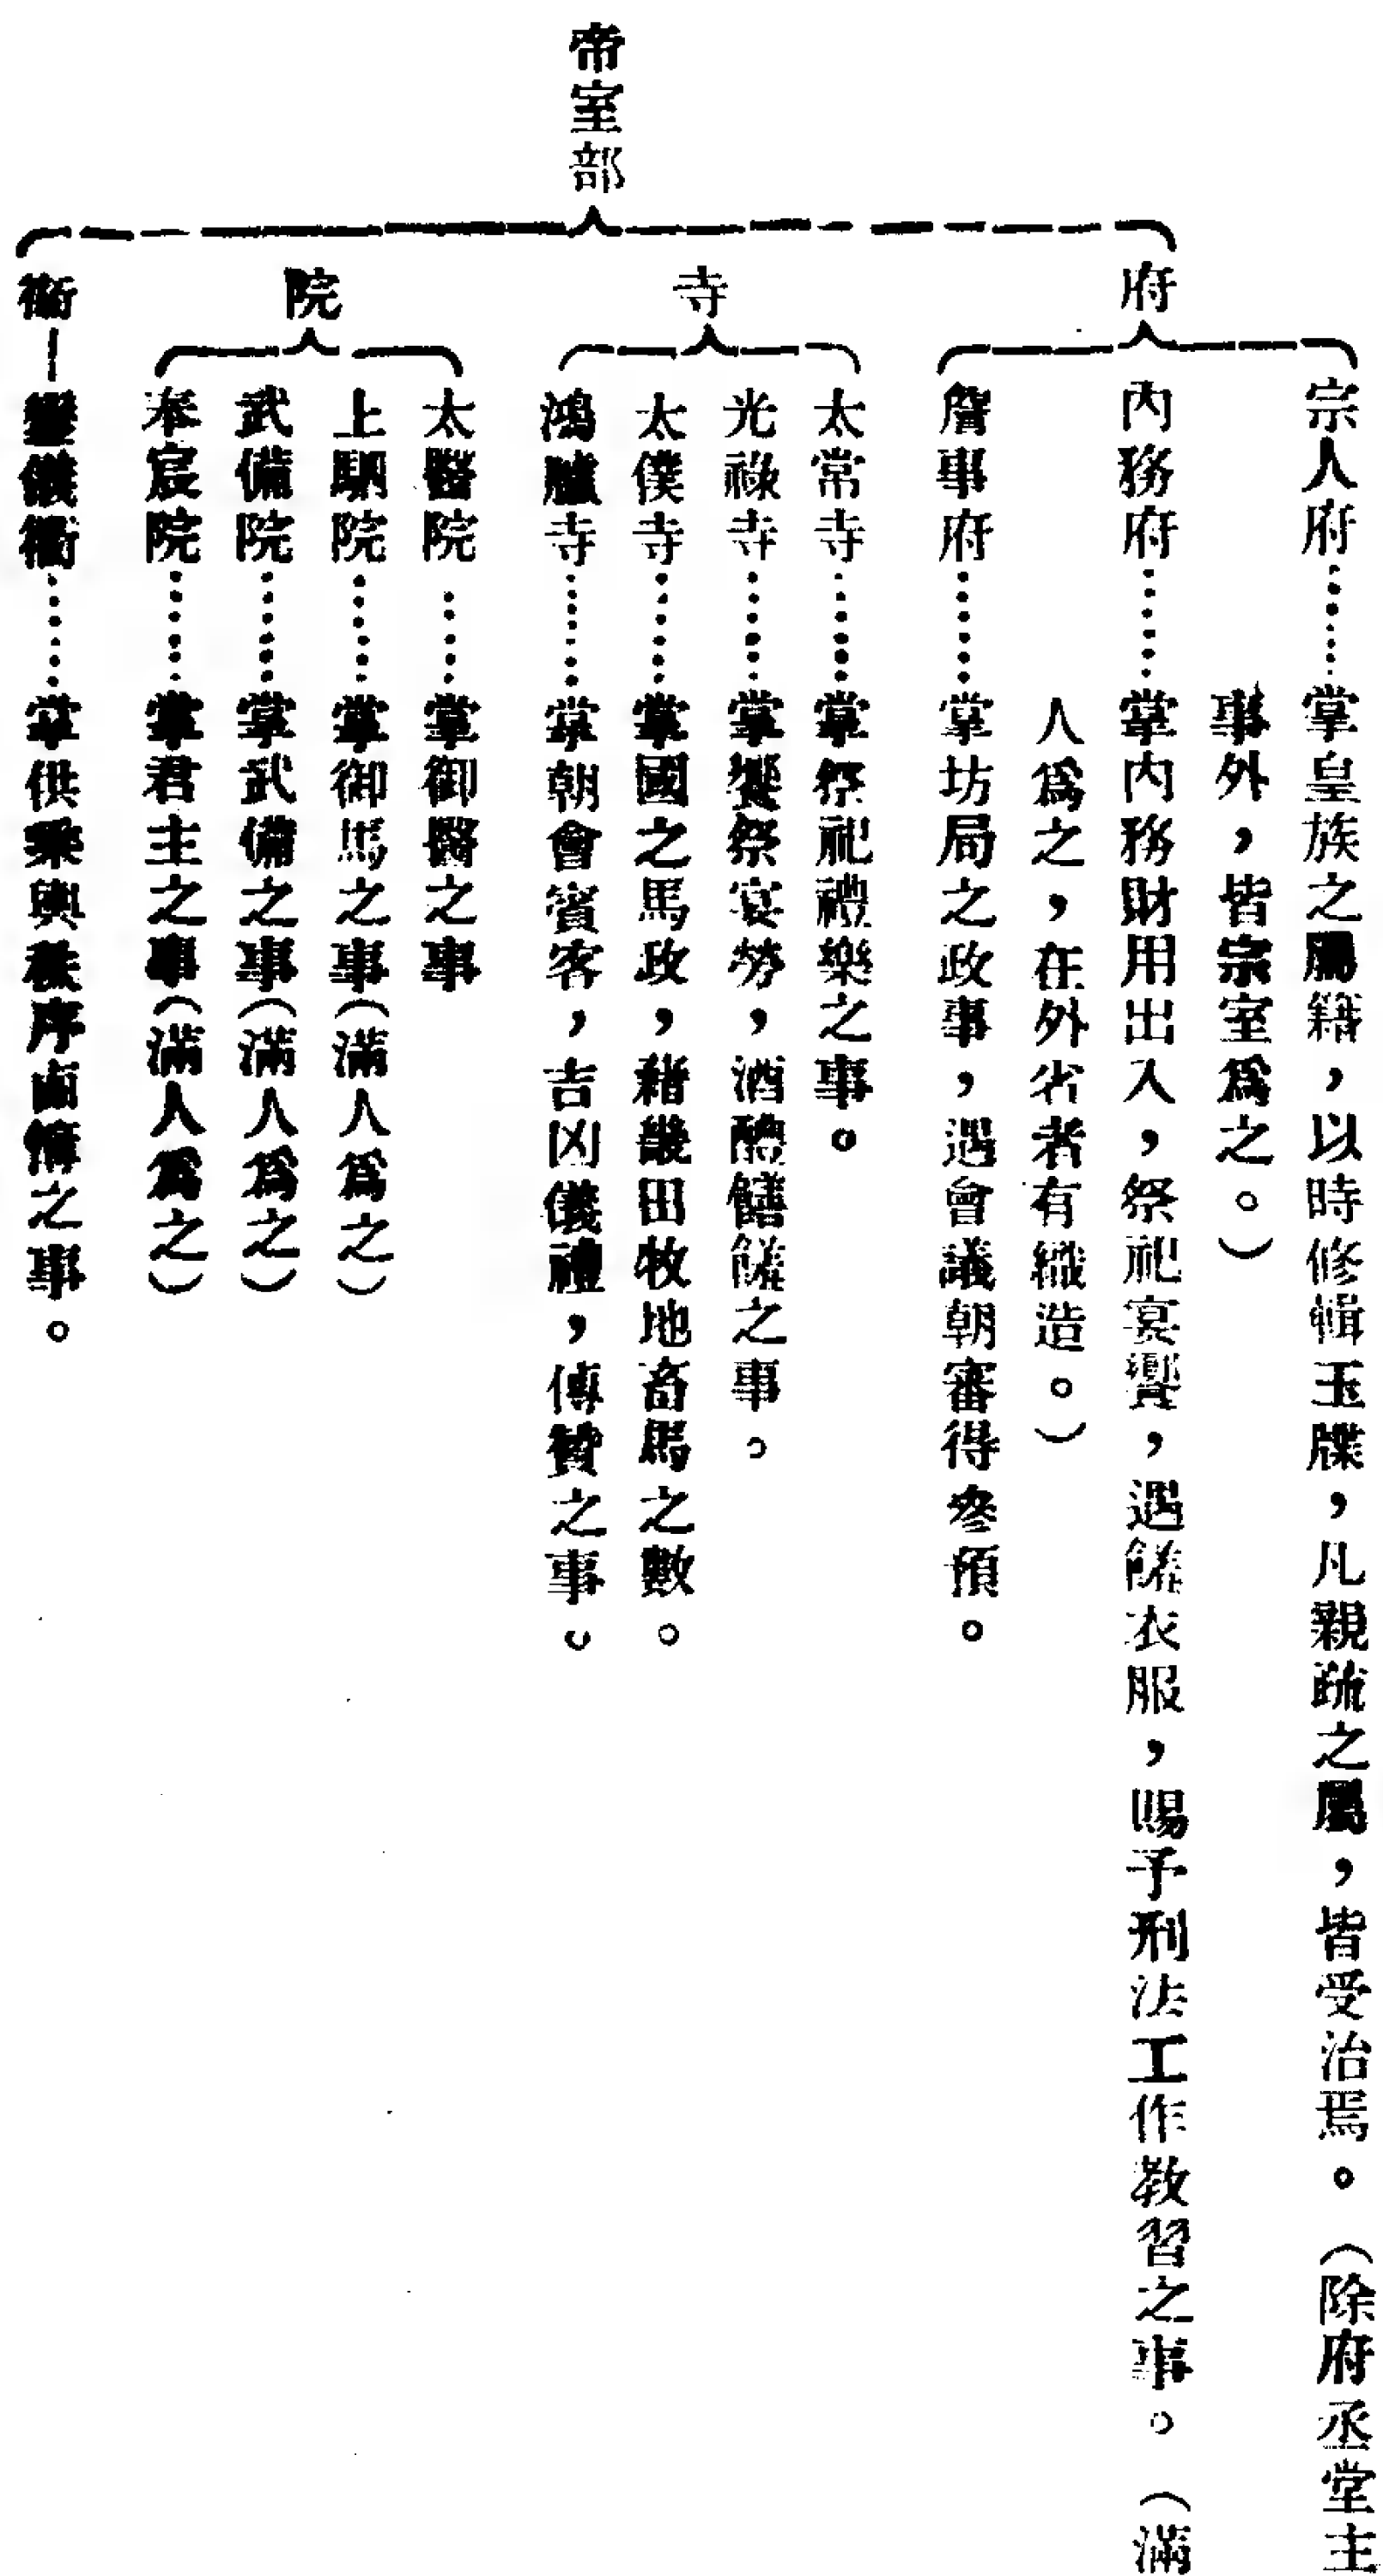 帝室部
府
宗人府……掌皇族之屬籍，以時修輯玉牒，凡親疏之屬，皆受治焉。（除府丞堂主
事外，皆宗室爲之。）
內務府……掌內務財用出入，祭祀宴饗，遇饈衣服，賜予刑法工作教習之事。（滿
人爲之，在外省者有織造。）
詹事府……掌坊局之政事，遇會議朝審得參預。
寺
太常寺……掌祭祀禮樂之事。
光祿寺……掌饗祭宴勞，酒醴饍饈之事。
太僕寺……掌國之馬政，籍畿田牧地畜馬之數。
鴻臚寺……掌朝會賓客，吉凶儀禮，傅贊之事。
院
太醫院……掌御醫之事
上駟院……掌御馬之事（滿人爲之）
武備院……掌武備之事（滿人爲之）
奉宸院……掌君主之事（滿人爲之）
衞
鑾儀衞……掌供乘輿秩序鹵簿之事。